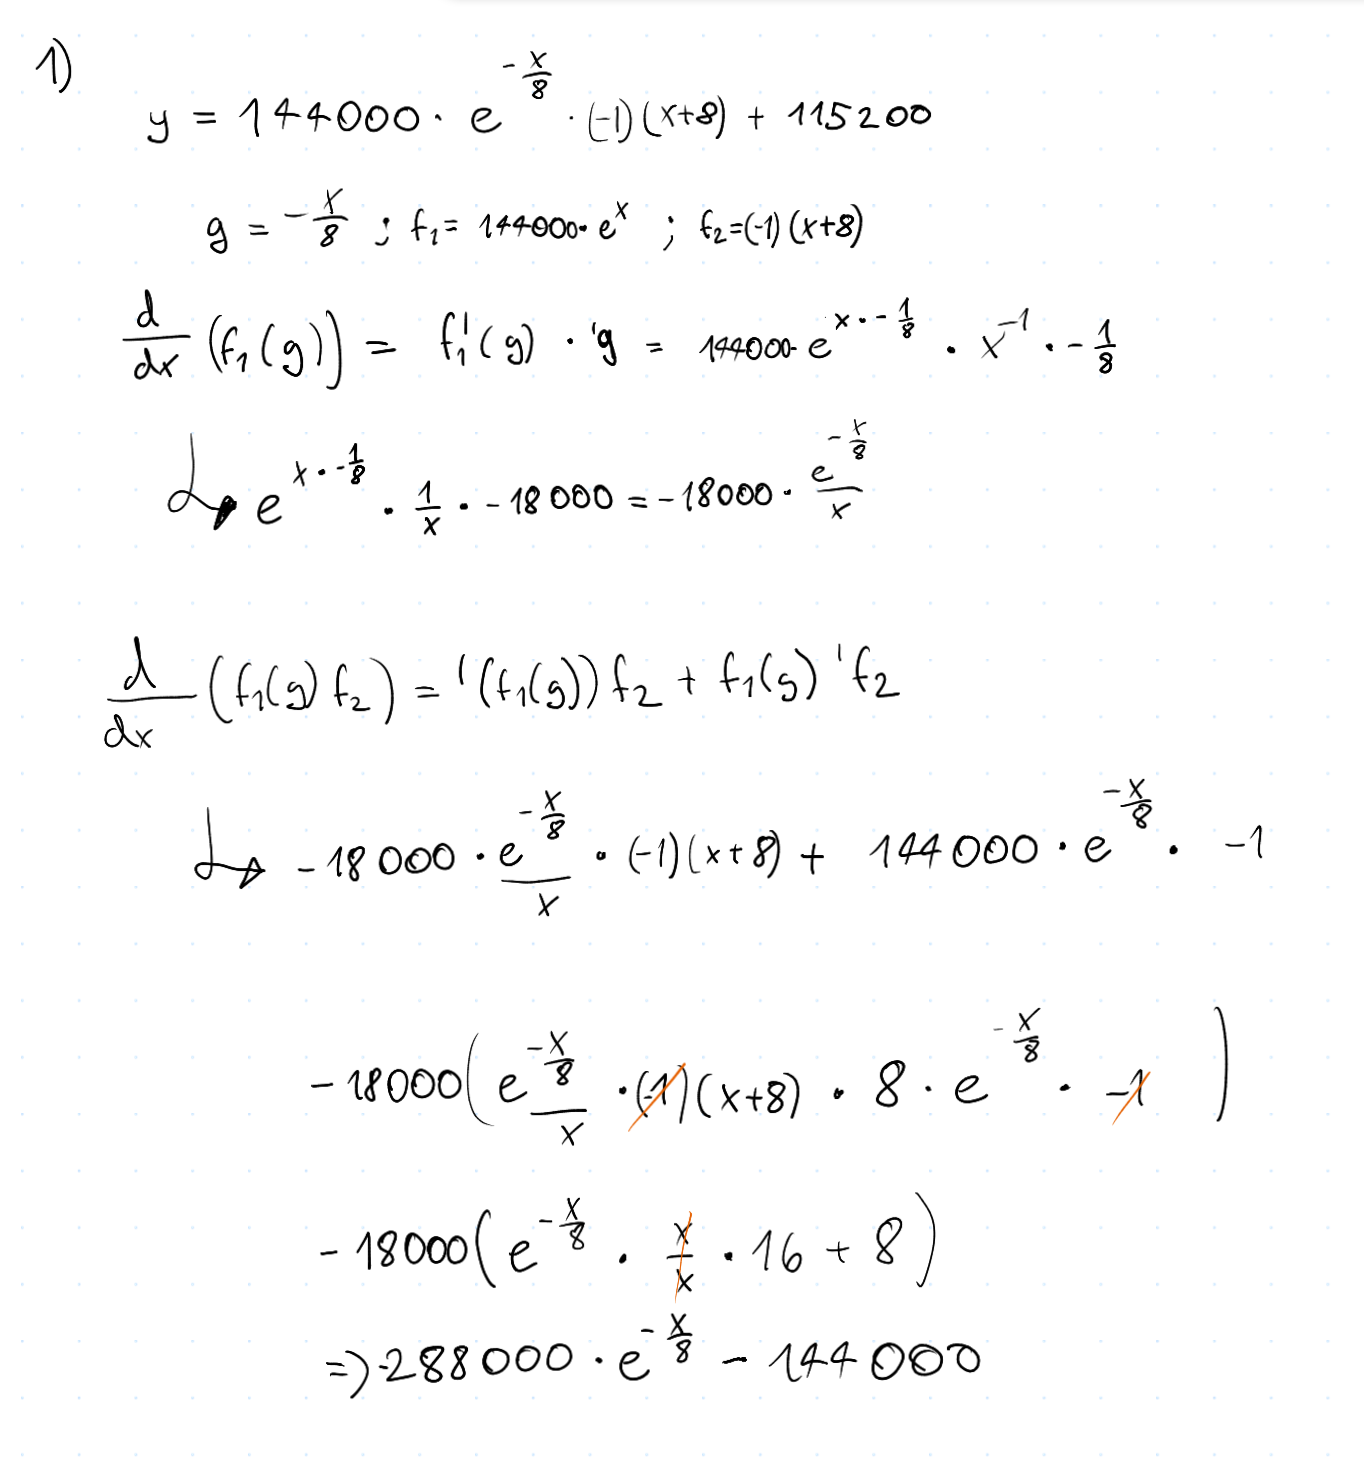 1)
y = 144000 · e^(-x/8) · (-1)(x+8) + 115200
g = -x/8 ; f₁ = 144000 · e^x ; f₂=(-1)(x+8)
d/dx (f₁(g)) = f₁'(g) · 'g = 144000 · e^(x·-1/8) · x^(-1) · -1/8
↳ e^(x·-1/8) · 1/x · -18000 = -18000 · e^(-x/8)/x
d/dx (f₁(g) f₂) = '(f₁(g)) f₂ + f₁(g) 'f₂
↳ -18000 · e^(-x/8)/x · (-1)(x+8) + 144000 · e^(-x/8) · -1
-18000(e^(-x/8)/x · (-1)(x+8) · 8 · e^(-x/8) · -1)
-18000(e^(-x/8) · x/x · 16 + 8)
=> -288000 · e^(-x/8) - 144000